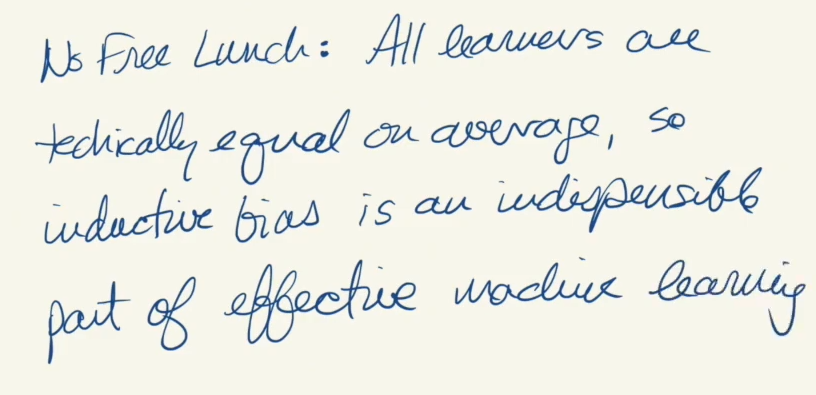 No Free Lunch: All learners are
techically equal on average, so
inductive bias is an indispensible
part of effective machine learning